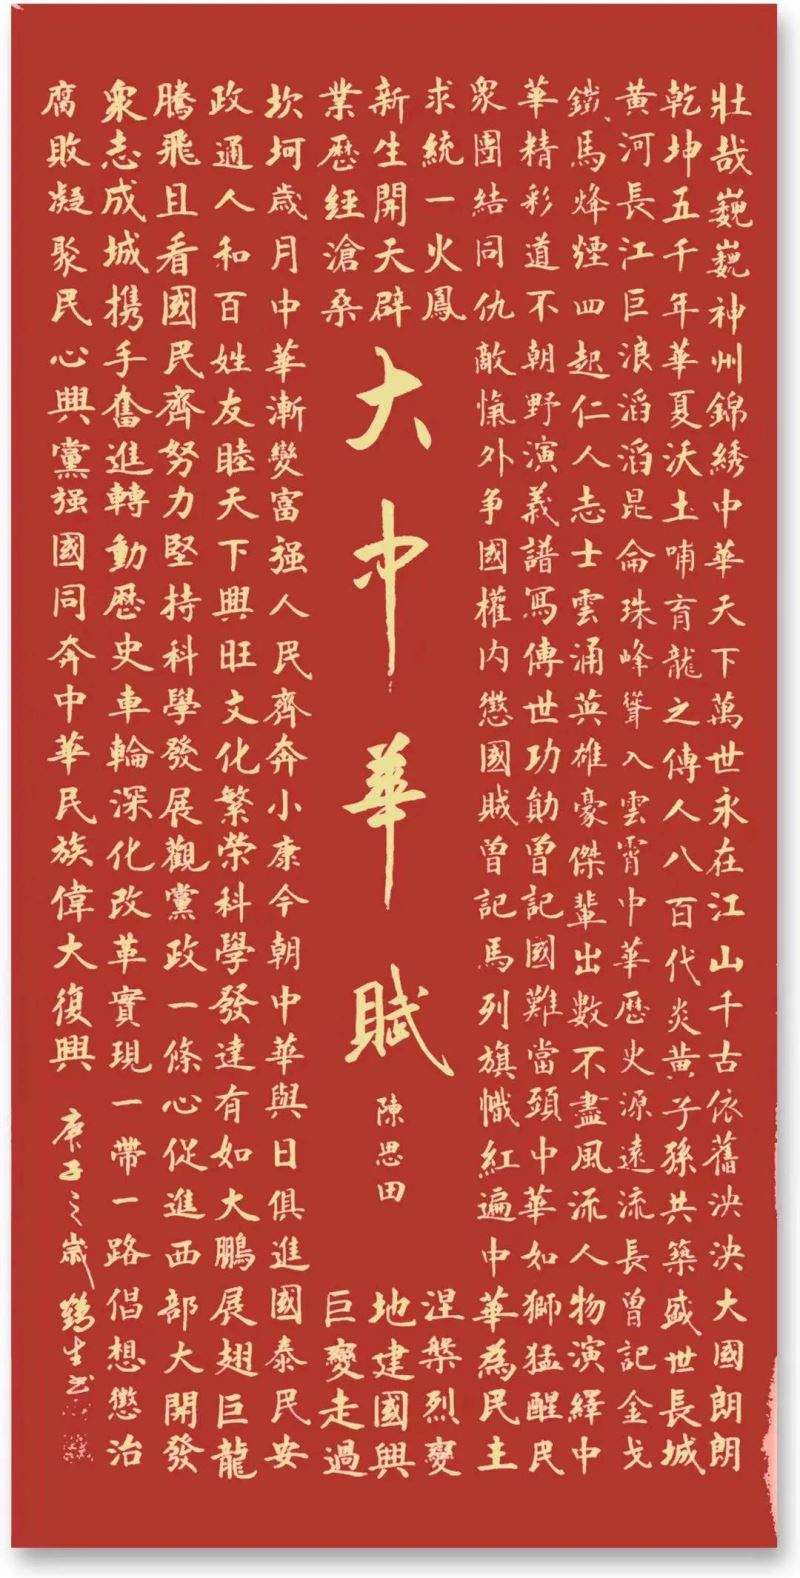 大中華賦
陳思田
壯哉巍巍神州錦綉中華天下萬世永在江山千古依舊泱泱大國朗朗
乾坤五千年華夏沃土哺育龍之傳人八百代炎黃子孫共築盛世長城
黃河長江巨浪滔滔昆侖珠峰聳入雲霄中華歷史源遠流長曾記金戈
鐵馬烽煙四起仁人志士雲涌英雄豪傑輩出數不盡風流人物演繹中
華精彩道不朝野演義譜寫傳世功勛曾記國難當頭中華如獅猛醒民
衆團結同仇敵愾外争國權内懲國賊曾記馬列旗幟紅遍中華為民主
求統一火鳳涅槃烈變
新生開天辟地建國興
業歷經滄桑巨變走過
坎坷歲月中華漸變富强人民齊奔小康今朝中華與日俱進國泰民安
政通人和百姓友睦天下興旺文化繁荣科學發達有如大鵬展翅巨龍
騰飛且看國民齊努力堅持科學發展觀黨政一條心促進西部大開發
衆志成城携手奮進轉動歷史車輪深化改革實現一帶一路倡想懲治
腐敗凝聚民心興黨强國同奔中華民族偉大復興
庚子之歲
生书